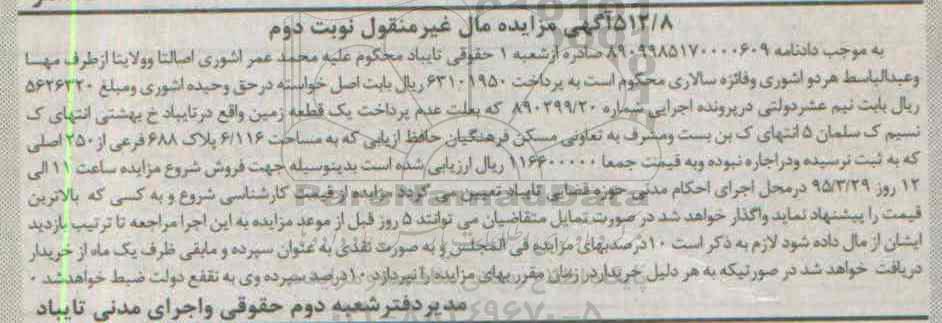 ۵۱۲/۸آگهی مزایده مال غیرمنقول نوبت دوم
به موجب دادنامه ۸۹۰۹۹۸۵۱۷۰۰۰۰۶۰۹ صادره ازشعبه ۱ حقوقی تایباد محکوم علیه محمد عمر اشوری اصالتا وولایتا ازطرف مهسا
وعبدالباسط هردو اشوری وفائزه سالاری محکوم است به پرداخت ۶۳۱۰۱۹۵۰ ریال بابت اصل خواسته درحق وحیده اشوری ومبلغ ۵۶۲۶۳۲۰
ریال بابت نیم عشردولتی درپرونده اجرایی شماره ۸۹۰۲۹۹/۲۰ که بعلت عدم پرداخت یک قطعه زمین واقع درتایباد خ بهشتی انتهای ک
نسیم ک سلمان ۵ انتهای ک بن بست ومشرف به تعاونی مسکن فرهنگیان حافظ ازیابی که به مساحت ۶/۱۱۶ پلاک ۶۸۸ فرعی از ۲۵۰ اصلی
که به ثبت نرسیده ودراجاره نبوده وبه قیمت جمعا ۱۱۶۶۰۰۰۰۰ ریال ارزیابی شده است بدینوسیله جهت فروش شروع مزایده ساعت ۱۱ الی
۱۲ روز ۹۵/۳/۲۹ درمحل اجرای احکام مدنی حوزه قضایی تایباد تعیین می گردد مزایده ازقیمت کارشناسی شروع و به کسی که بالاترین
قیمت را پیشنهاد نماید واگذار خواهد شد در صورت تمایل متقاضیان می توانند ۵ روز قبل از موعد مزایده به این اجرا مراجعه تا ترتیب بازدید
ایشان از مال داده شود لازم به ذکر است ۱۰درصدبهای مزایده فی المجلس و به صورت نقدی به عنوان سپرده و مابقی ظرف یک ماه از خریدار
دریافت خواهد شد در صورتیکه به هر دلیل خریداردرزمان مقرربهای مزایده را نپردازد ۱۰درصد سپرده وی به نقفع دولت ضبط خواهدشد ۰
مدیردفترشعبه دوم حقوقی واجرای مدنی تایباد